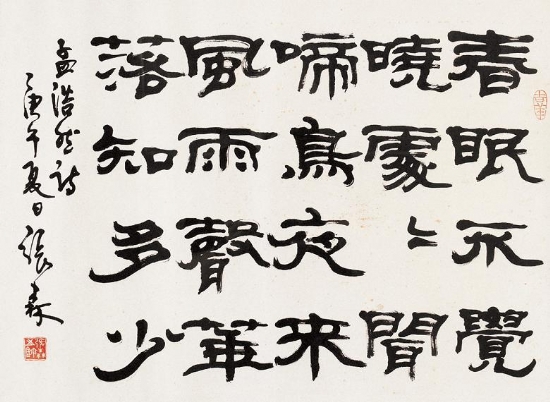 春眠不覺
曉處〻聞
啼鳥夜來
風雨聲華
落知多少
孟浩然詩
庚午夏日張森